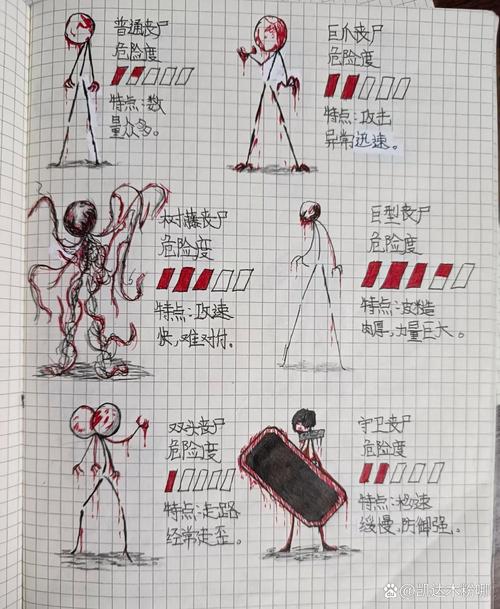 普通丧尸
危险度
特点:数
量众多。
巨爪丧尸
危险度
特点:攻击
异常迅速。
树藤丧尸
危险度
特点:攻速
快,难对付。
巨型丧尸
危险度
特点:皮糙
肉厚,力量巨大。
双头丧尸
危险度
特点:走路
经常走歪。
守卫丧尸
危险度
特点:移速
缓慢,防御强。
凯达木粉嘟